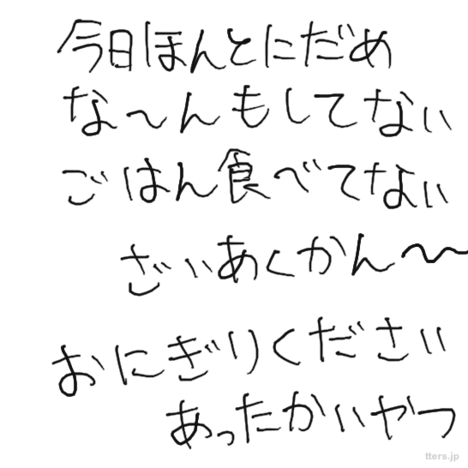 今日ほんとにだめ
な〜んもしてない
ごはん食べてない
ざいあくかん〜
おにぎりください
あったかいやつ
tters.jp